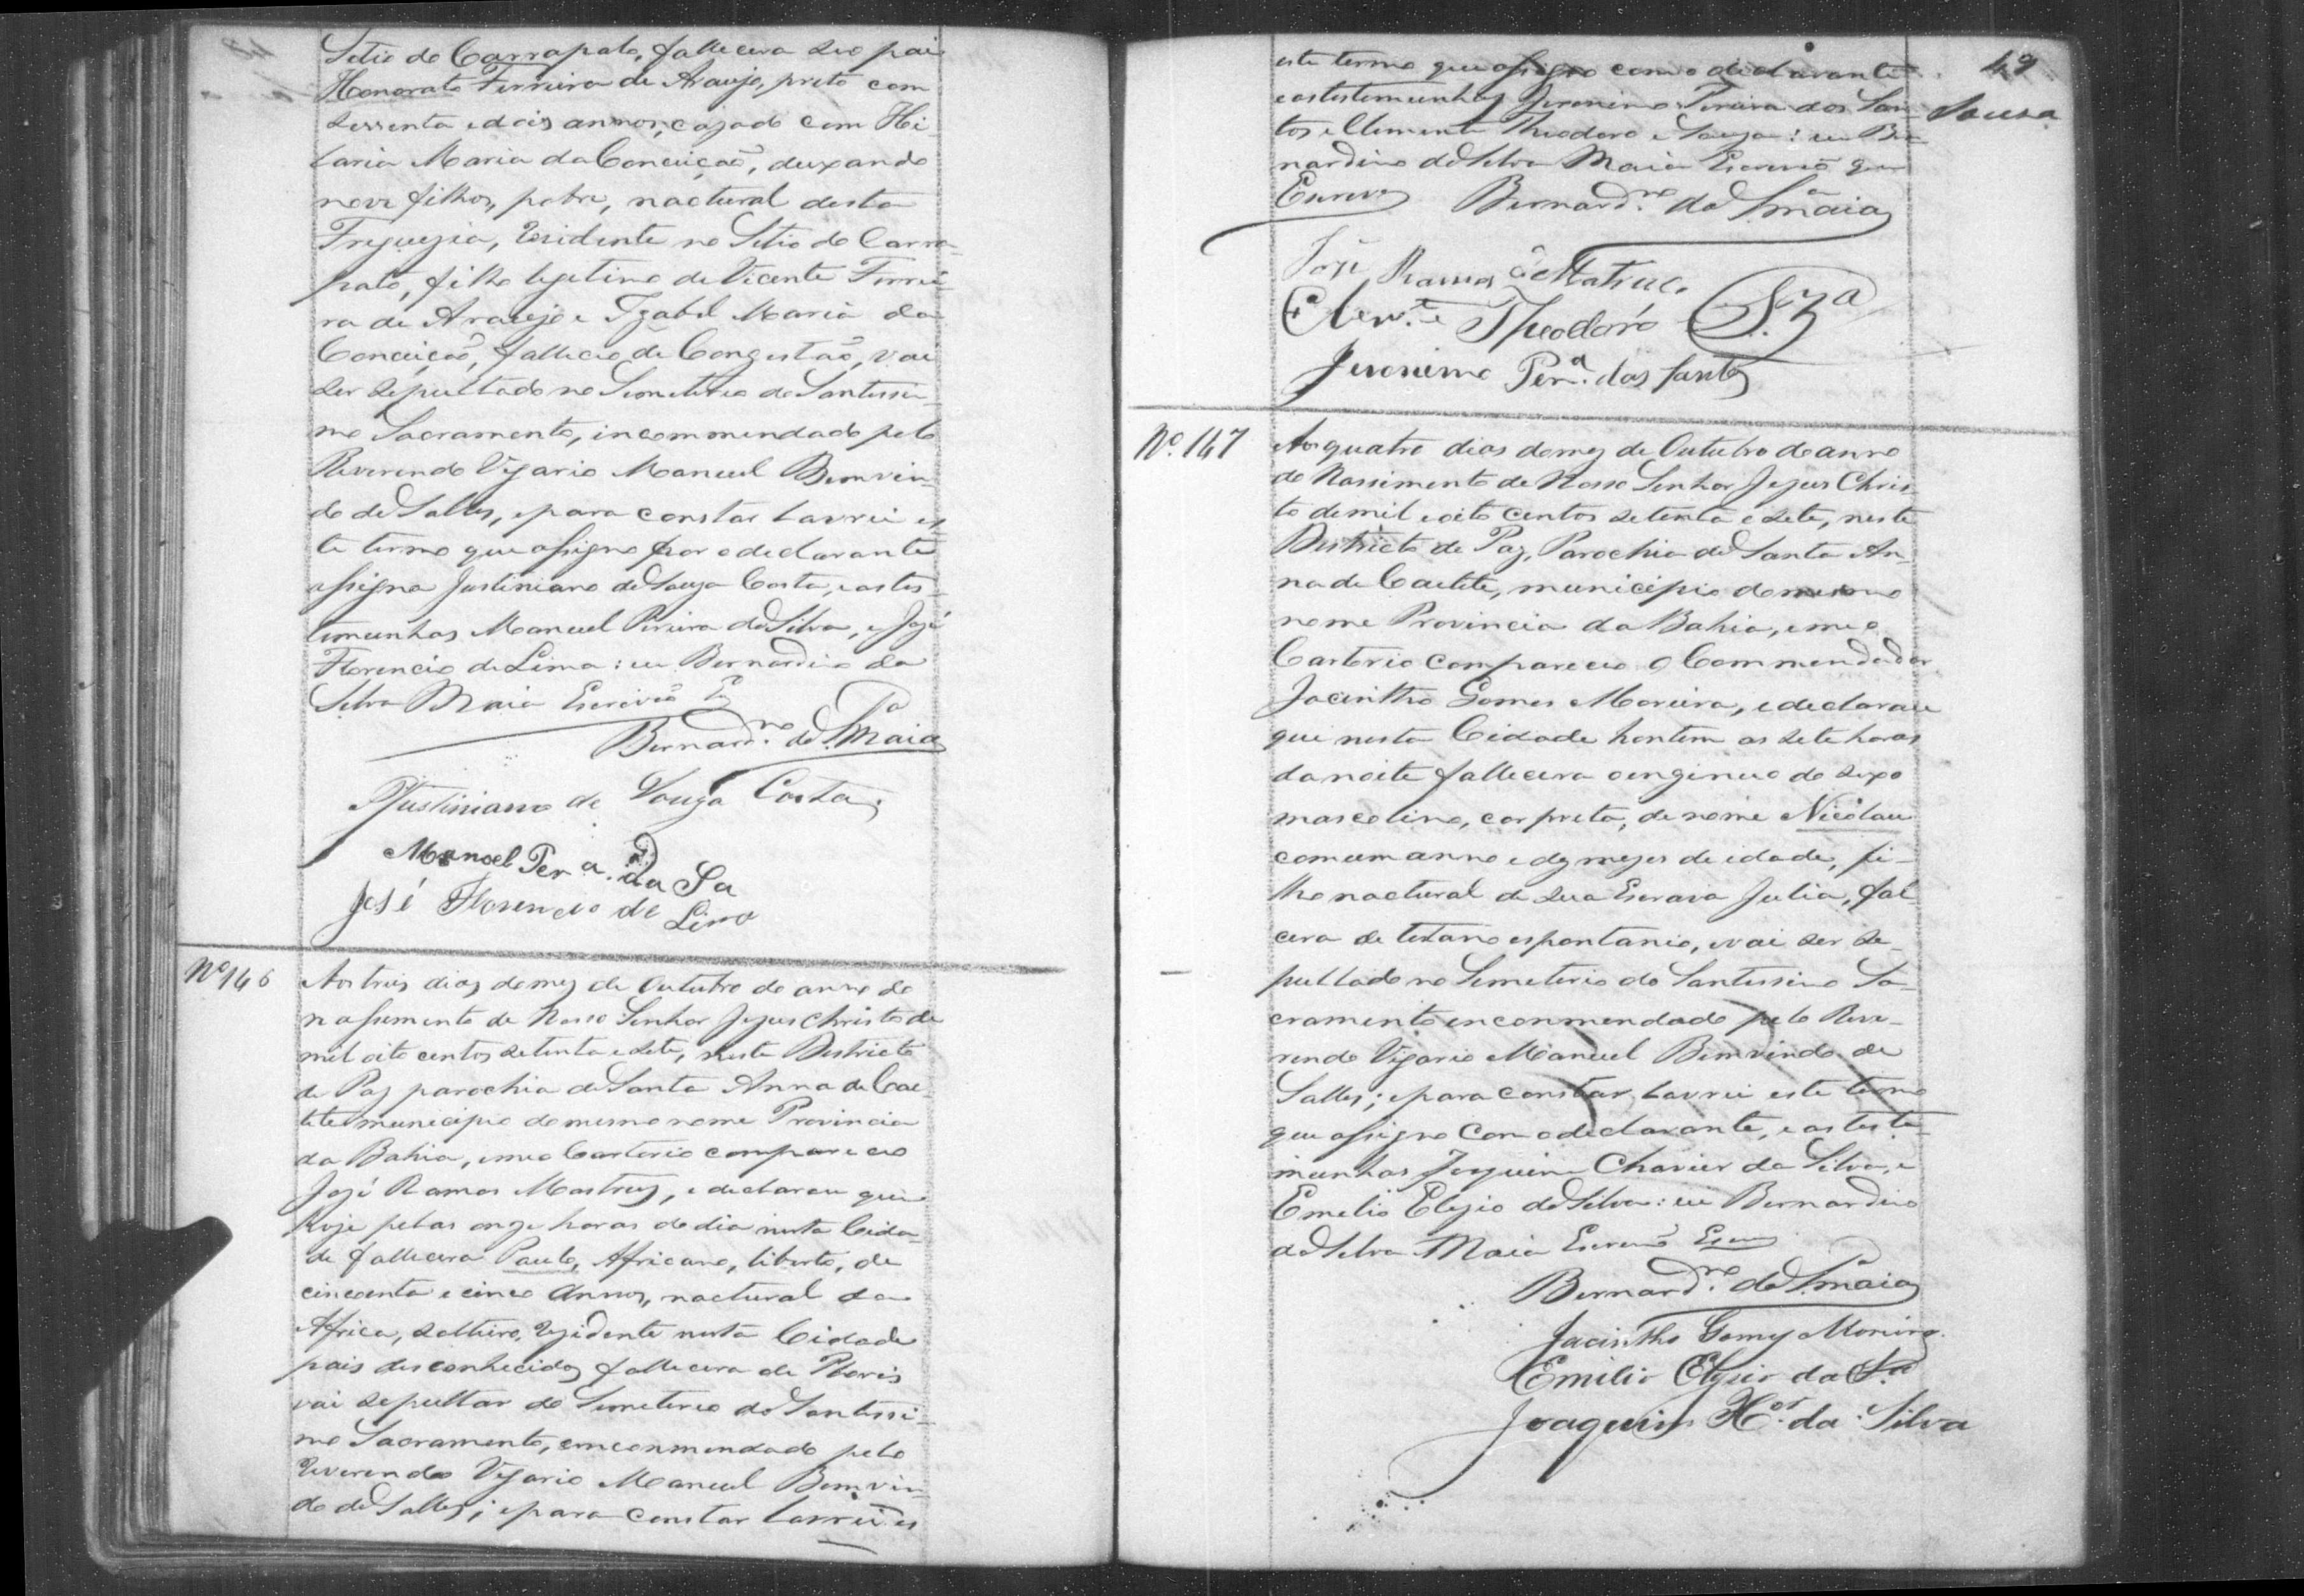 Sitio do Carrapato, fallecera seo pai
Honorato Ferreira de Araujo, preto com
secenta e dois annos, casado com Hi-
laria Maria da Conceição, deixando
nove filhos, pobre, nactural desta
Freguezia, residente no Sitio do Carra-
pato, filho legetimo de Vicente Ferrei-
ra de Araujo e Izabel Maria da
Conceição, falleceo de Congestão, vai
ser sepultado no Semeterio do Santissi-
mo Sacramento, incommendado pelo
Reverendo Vigario Manuel Bemvin-
do de Salles, e para constar lavrei es-
te termo que assigno por o declarante
assigna Justiniano de Souza Costa, e as tes-
timunhas Manuel Pereira da Silva, e José
Florencio de Lima: eu Bernardino da
Silva Maia Escrivão
Bernard.no da S.a Maia
Justiniano de Souza Costa
Manoel Per.a da Sa
José Florencio de Lima
Nº 146
Aos tres dias do mez de Outubro do anno do
nassimento de Nosso Senhor Jezus Christo de
mil oito centos setenta e sete, neste Districto
de Paz parochia de Santa Anna de Cae-
tete municipio do mesmo nome Provincia
da Bahia, em meo Cartorio compareceo
José Ramos Mastruz, e declarou que
hoje pelas onze horas do dia nesta Cida-
de fallecera Paulo, Africano, liberto, de
cincoenta e cinco annos, nactural da
Africa, solteiro, rezidente nesta Cidade
pais desconhecidos fallecera de
vai sepultar do Semeterio do Santissi-
mo Sacramento, emcommendado pelo
reverendo Vigario Manuel Bemvin-
do de Salles; e para constar lavrei es
49
este termo que assigno com o declarante
e as testemunhas Jeronimo Pereira dos San-
tos e Clemente Theodoro e Souza: eu Ber-
nardino da Silva Maia Escrivão que
Escrevi Bernard.no da S.a Maia
Sousa
José Ramos Mastruz
Clem.te Theodoro Sz.a
Jeronimo Per.a dos Santos
Nº 147
Aos quatro dias do mez de Outubro do anno
do Nassimento de Nosso Senhor Jezus Chris-
to de mil e oito centos setenta e sete, neste
Districto de Paz, Parochia de Santa An-
na de Caetete, municipio do mesmo
nome Provincia da Bahia, em meo
Cartorio compareceo o Commendador
Jacintho Gomes Moreira, e declarou
que nesta Cidade hontem as sete horas
da noite fallecera o engenuo do sexo
mascolino, cor preta, de nome Nicolau
com um anno e dez mezes de idade, fi-
lho nactural de sua Escrava Julia, fal-
cera de tetano espontanio, e vai ser se-
pultado no Semeterio do Santissimo Sa-
cramento enconmendado pelo Reve-
rendo Vigario Manuel Bemvindo de
Salles; e para constar lavrei este termo
que assigno com o declarante, e as teste-
munhas Joaquim Chavier da Silva, e
Emelio Elizio da Silva: eu Bernardino
da Silva Maia Escrivão Escrevi
Bernard.no da S.a Maia
Jacintho Gomes Moreira
Emilio Elysio da S.a
Joaquim X.er da Silva